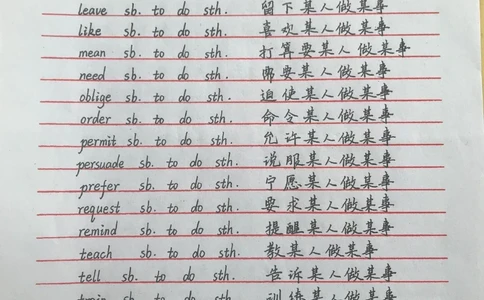 leave sb. to do sth. 留下某人做某事
like sb. to do sth. 喜欢某人做某事
mean sb. to do sth. 打算要某人做某事
need sb. to do sth. 需要某人做某事
oblige sb. to do sth. 迫使某人做某事
order sb. to do sth. 命令某人做某事
permit sb. to do sth. 允许某人做某事
persuade sb. to do sth. 说服某人做某事
prefer sb. to do sth. 宁愿某人做某事
request sb. to do sth. 要求某人做某事
remind sb. to do sth. 提醒某人做某事
teach sb. to do sth. 教某人做某事
tell sb. to do sth. 告诉某人做某事
train sb. to do sth. 训练某人做某事